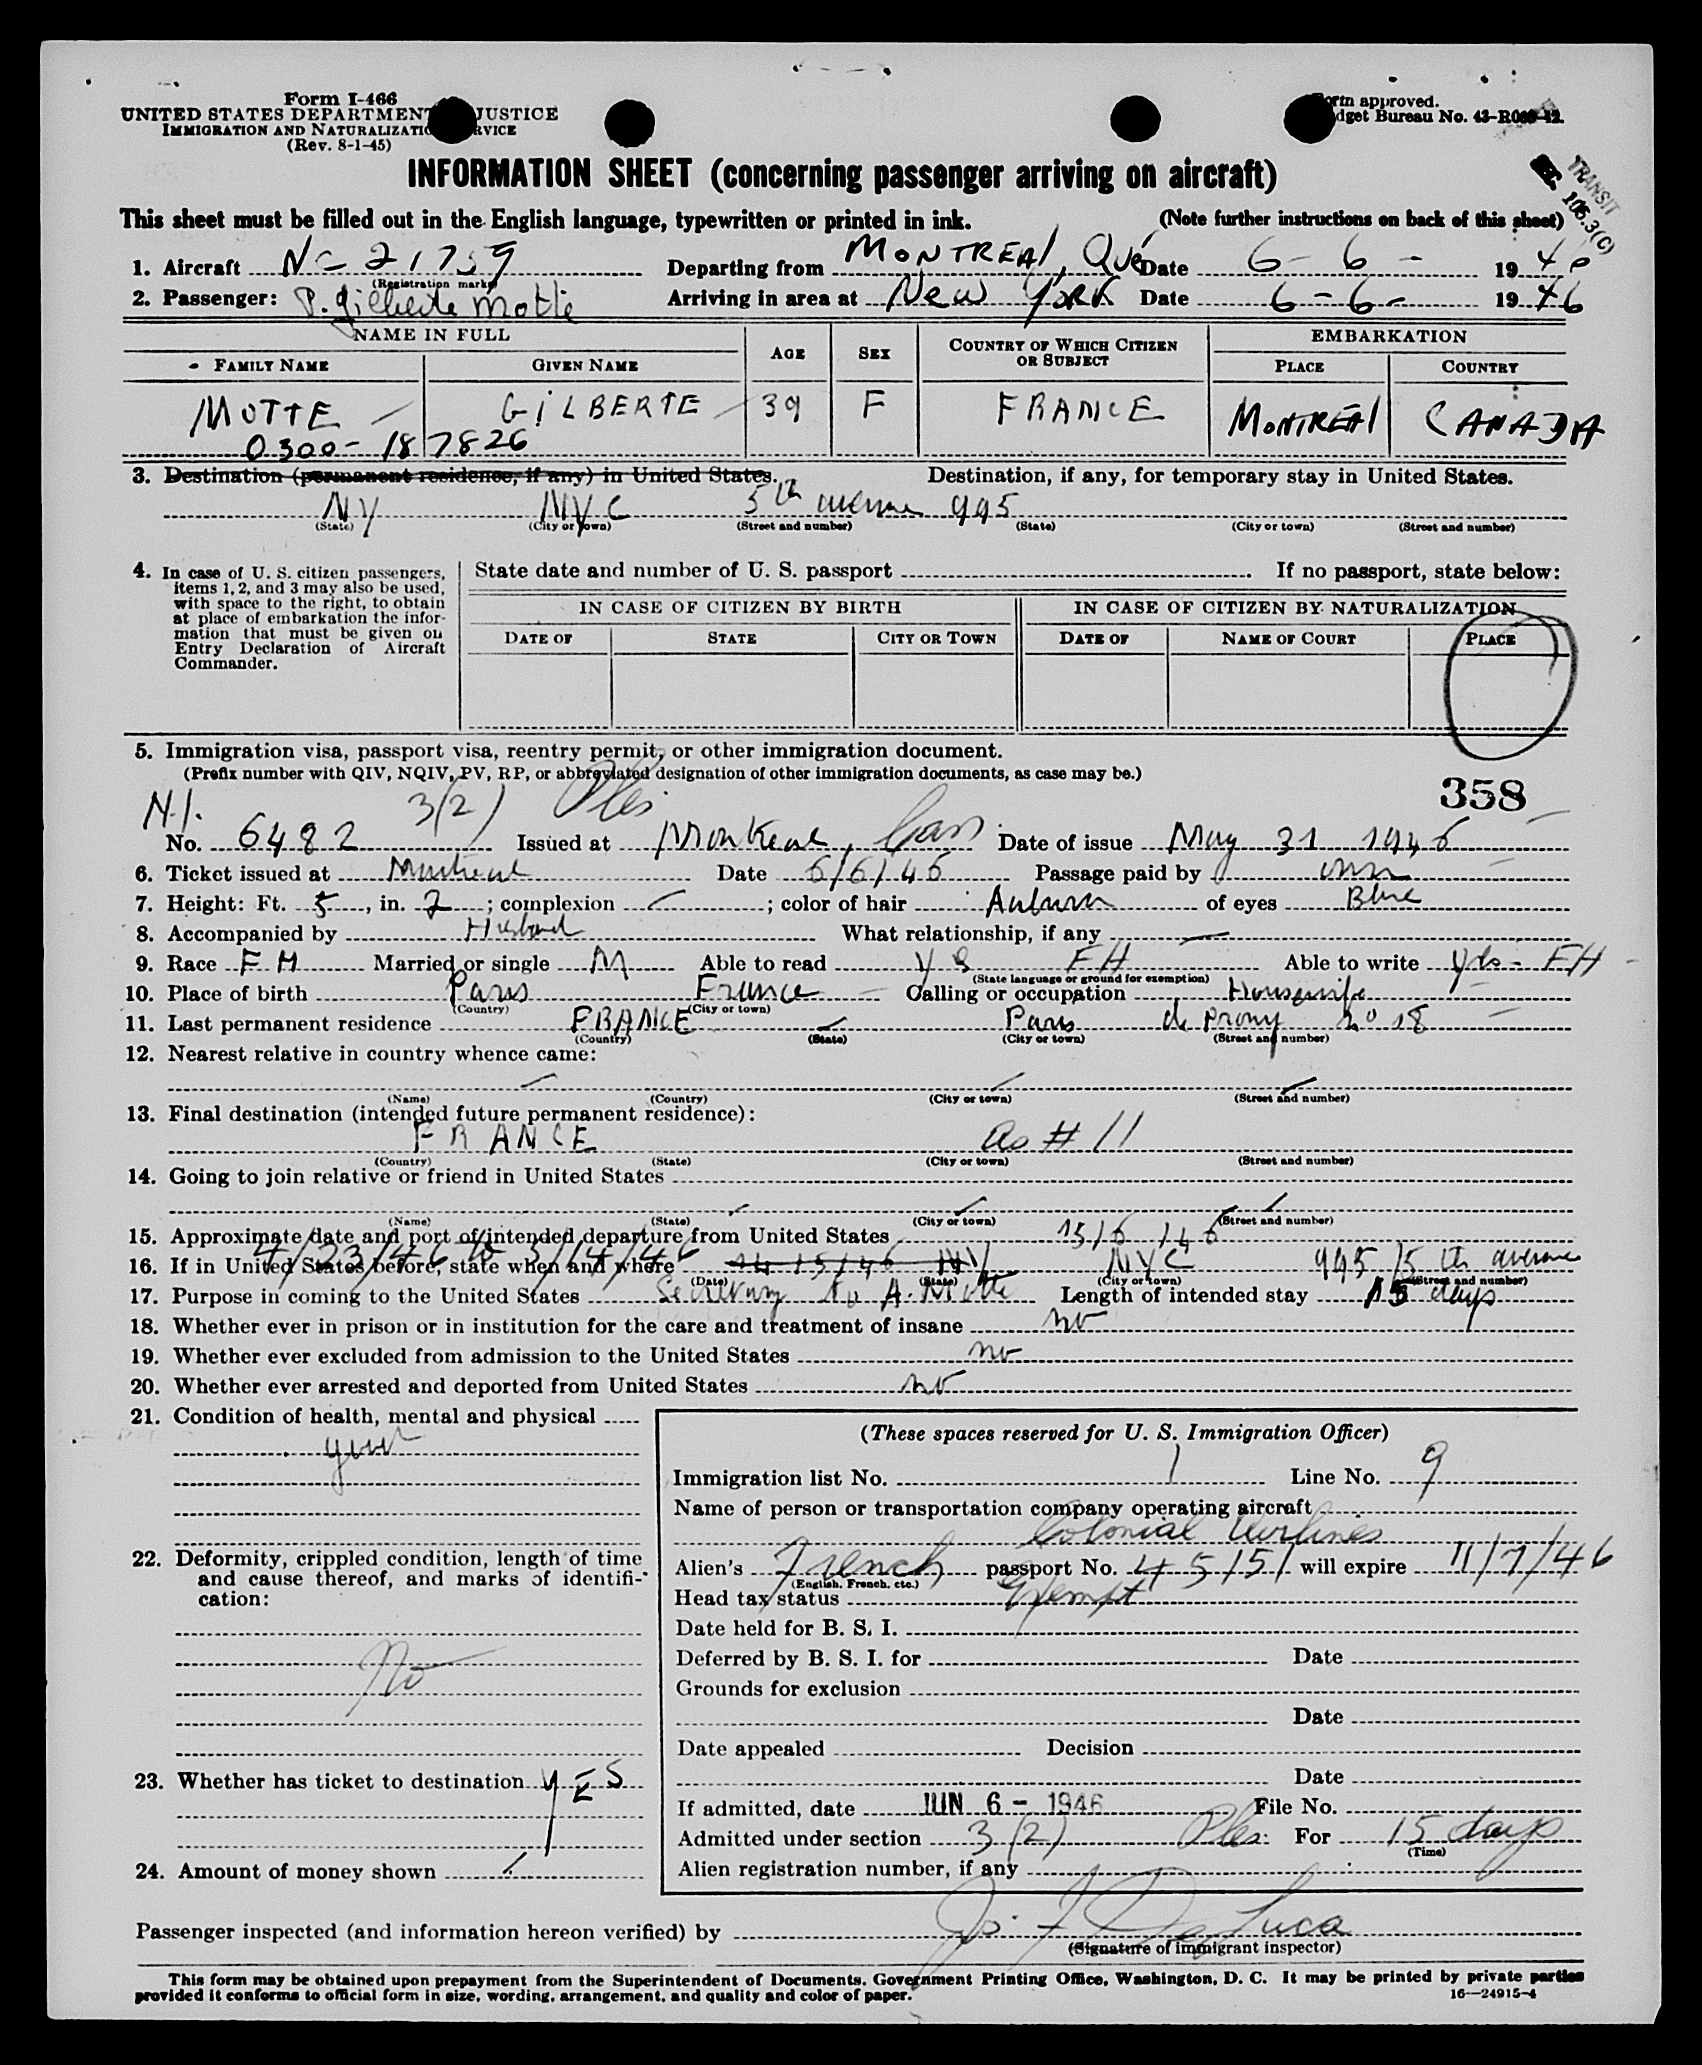 Form I-466
UNITED STATES DEPARTMENT JUSTICE
IMMIGRATION AND NATURALIZATION SERVICE
(Rev. 8-1-45)
Form approved.
Budget Bureau No. 43-R
TRANSIT
SEC. 105.3(C)
INFORMATION SHEET (concerning passenger arriving on aircraft)
This sheet must be filled out in the English language, typewritten or printed in ink. (Note further instructions on back of this sheet)
1. Aircraft NC 21759 Departing from MONTREAL, Qué Date 6-6- 1946
(Registration marks)
2. Passenger: P. Gilberte Motte Arriving in area at New York Date 6-6- 1946
NAME IN FULL AGE SEX COUNTRY OF WHICH CITIZEN OR SUBJECT EMBARKATION
FAMILY NAME GIVEN NAME PLACE COUNTRY
MOTTE GILBERTE 39 F FRANCE MONTREAL CANADA
0300-187826
3. Destination (permanent residence, if any) in United States. Destination, if any, for temporary stay in United States.
NY NYC 5th avenue 995
(State) (City or town) (Street and number) (State) (City or town) (Street and number)
4. In case of U. S. citizen passengers, items 1, 2, and 3 may also be used, with space to the right, to obtain at place of embarkation the information that must be given on Entry Declaration of Aircraft Commander.
State date and number of U. S. passport If no passport, state below:
IN CASE OF CITIZEN BY BIRTH IN CASE OF CITIZEN BY NATURALIZATION
DATE OF STATE CITY OR TOWN DATE OF NAME OF COURT PLACE
5. Immigration visa, passport visa, reentry permit, or other immigration document.
(Prefix number with QIV, NQIV, PV, RP, or abbreviated designation of other immigration documents, as case may be.)
358
N.I. 3(2)
No. 6482 Issued at Montreal, Can. Date of issue May 31 1946
6. Ticket issued at Montreal Date 6/6/46 Passage paid by
7. Height: Ft. 5, in. 2; complexion ; color of hair Auburn of eyes Blue
8. Accompanied by Husband What relationship, if any
9. Race FH Married or single M Able to read yes FH Able to write yes - FH
(State language or ground for exemption)
10. Place of birth Paris France Calling or occupation Housewife
(Country) (City or town)
11. Last permanent residence FRANCE Paris de Prony no 18
(Country) (State) (City or town) (Street and number)
12. Nearest relative in country whence came:
(Name) (Country) (City or town) (Street and number)
13. Final destination (intended future permanent residence):
FRANCE as # 11
(Country) (State) (City or town) (Street and number)
14. Going to join relative or friend in United States
(Name) (State) (City or town) (Street and number)
15. Approximate date and port of intended departure from United States 15/6/46
4/23/46 to 5/14/46
16. If in United States before, state when and where NY NYC 995 5th avenue
(Date) (State) (City or town) (Street and number)
17. Purpose in coming to the United States Secretary to A. Motte Length of intended stay 15 days
18. Whether ever in prison or in institution for the care and treatment of insane no
19. Whether ever excluded from admission to the United States no
20. Whether ever arrested and deported from United States no
21. Condition of health, mental and physical
good
22. Deformity, crippled condition, length of time and cause thereof, and marks of identification:
No
23. Whether has ticket to destination YES
24. Amount of money shown
(These spaces reserved for U. S. Immigration Officer)
Immigration list No. 1 Line No. 9
Name of person or transportation company operating aircraft
Colonial Airlines
Alien's French passport No. 45151 will expire 11/7/46
(English, French, etc.)
Head tax status Exempt
Date held for B. S. I.
Deferred by B. S. I. for Date
Grounds for exclusion
Date
Date appealed Decision
Date
If admitted, date JUN 6 - 1946 File No.
Admitted under section 3(2) For 15 days
(Time)
Alien registration number, if any
Passenger inspected (and information hereon verified) by Jos. F. DeLuca
(Signature of immigrant inspector)
This form may be obtained upon prepayment from the Superintendent of Documents, Government Printing Office, Washington, D. C. It may be printed by private parties
provided it conforms to official form in size, wording, arrangement, and quality and color of paper.
16—24915-4